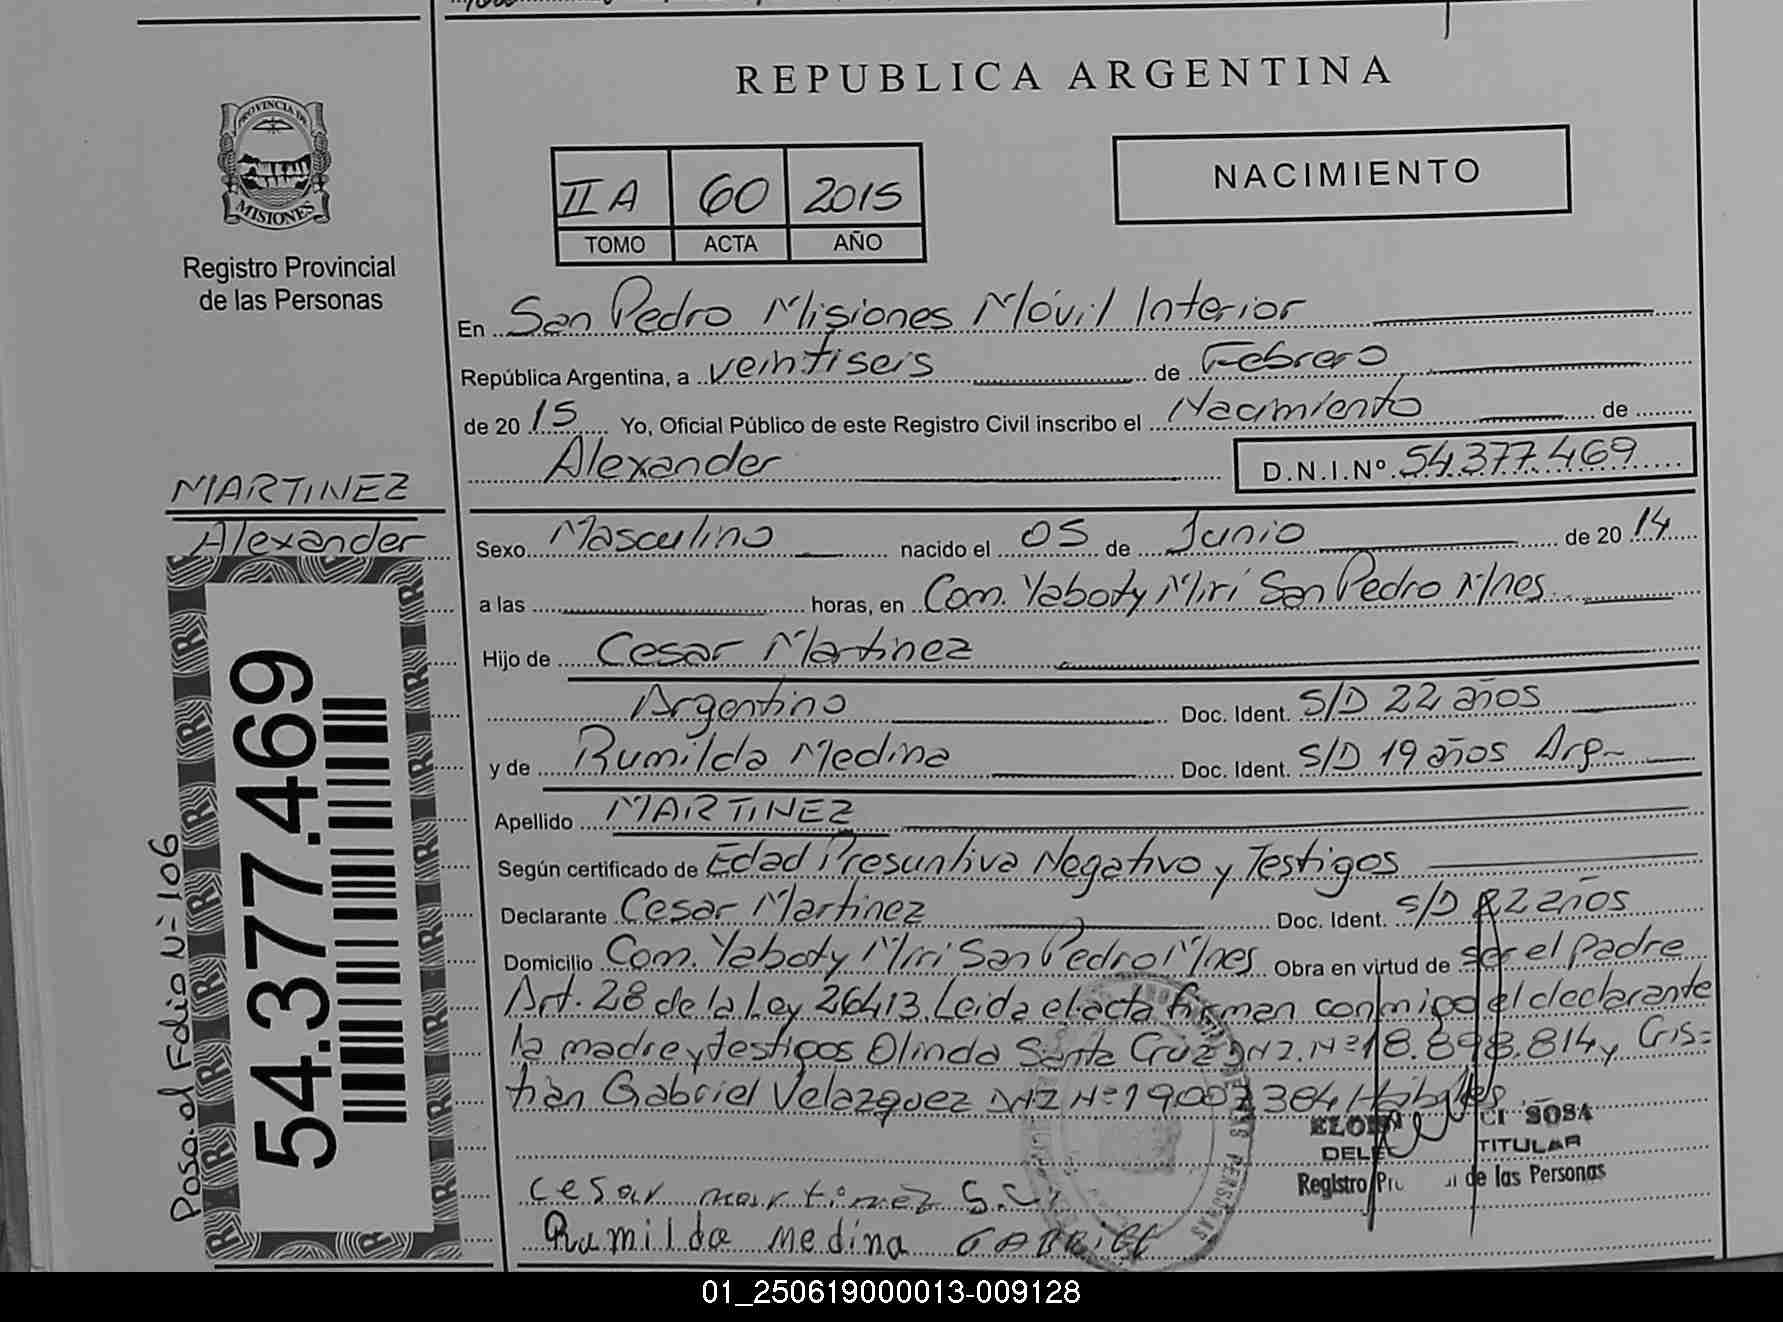 REPUBLICA ARGENTINA
PROVINCIA DE
MISIONES
Registro Provincial
de las Personas
II A 60 2015
TOMO ACTA AÑO
NACIMIENTO
En San Pedro Misiones Móvil Interior
República Argentina, a veintiseis de Febrero
de 2015 Yo, Oficial Público de este Registro Civil inscribo el Nacimiento de
Alexander D.N.I.Nº 54.377.469
MARTINEZ
Alexander
54.377.469
Pasa al Folio Nº 106
Sexo Masculino nacido el 05 de Junio de 2014
a las horas, en Com. Yaboty Miri San Pedro Mnes
Hijo de Cesar Martinez
Argentino Doc. Ident. S/D 22 años
y de Rumilda Medina Doc. Ident. S/D 19 años Arg-
Apellido MARTINEZ
Según certificado de Edad Presuntiva Negativo y Testigos
Declarante Cesar Martinez Doc. Ident. S/D 22 años
Domicilio Com. Yaboty Miri San Pedro Mnes Obra en virtud de ser el padre
Art. 28 de la Ley 26413 Leida el acta firman conmigo el declarante
la madre y testigos Olinda Santa Cruz DNI Nº 18.898.814 y Cris=
tian Gabriel Velazquez DNI Nº 19007384 Hábiles
SOSA
TITULAR
Registro de las Personas
cesar martinez S.C.
Rumilda medina GABRIEL
01_250619000013-009128